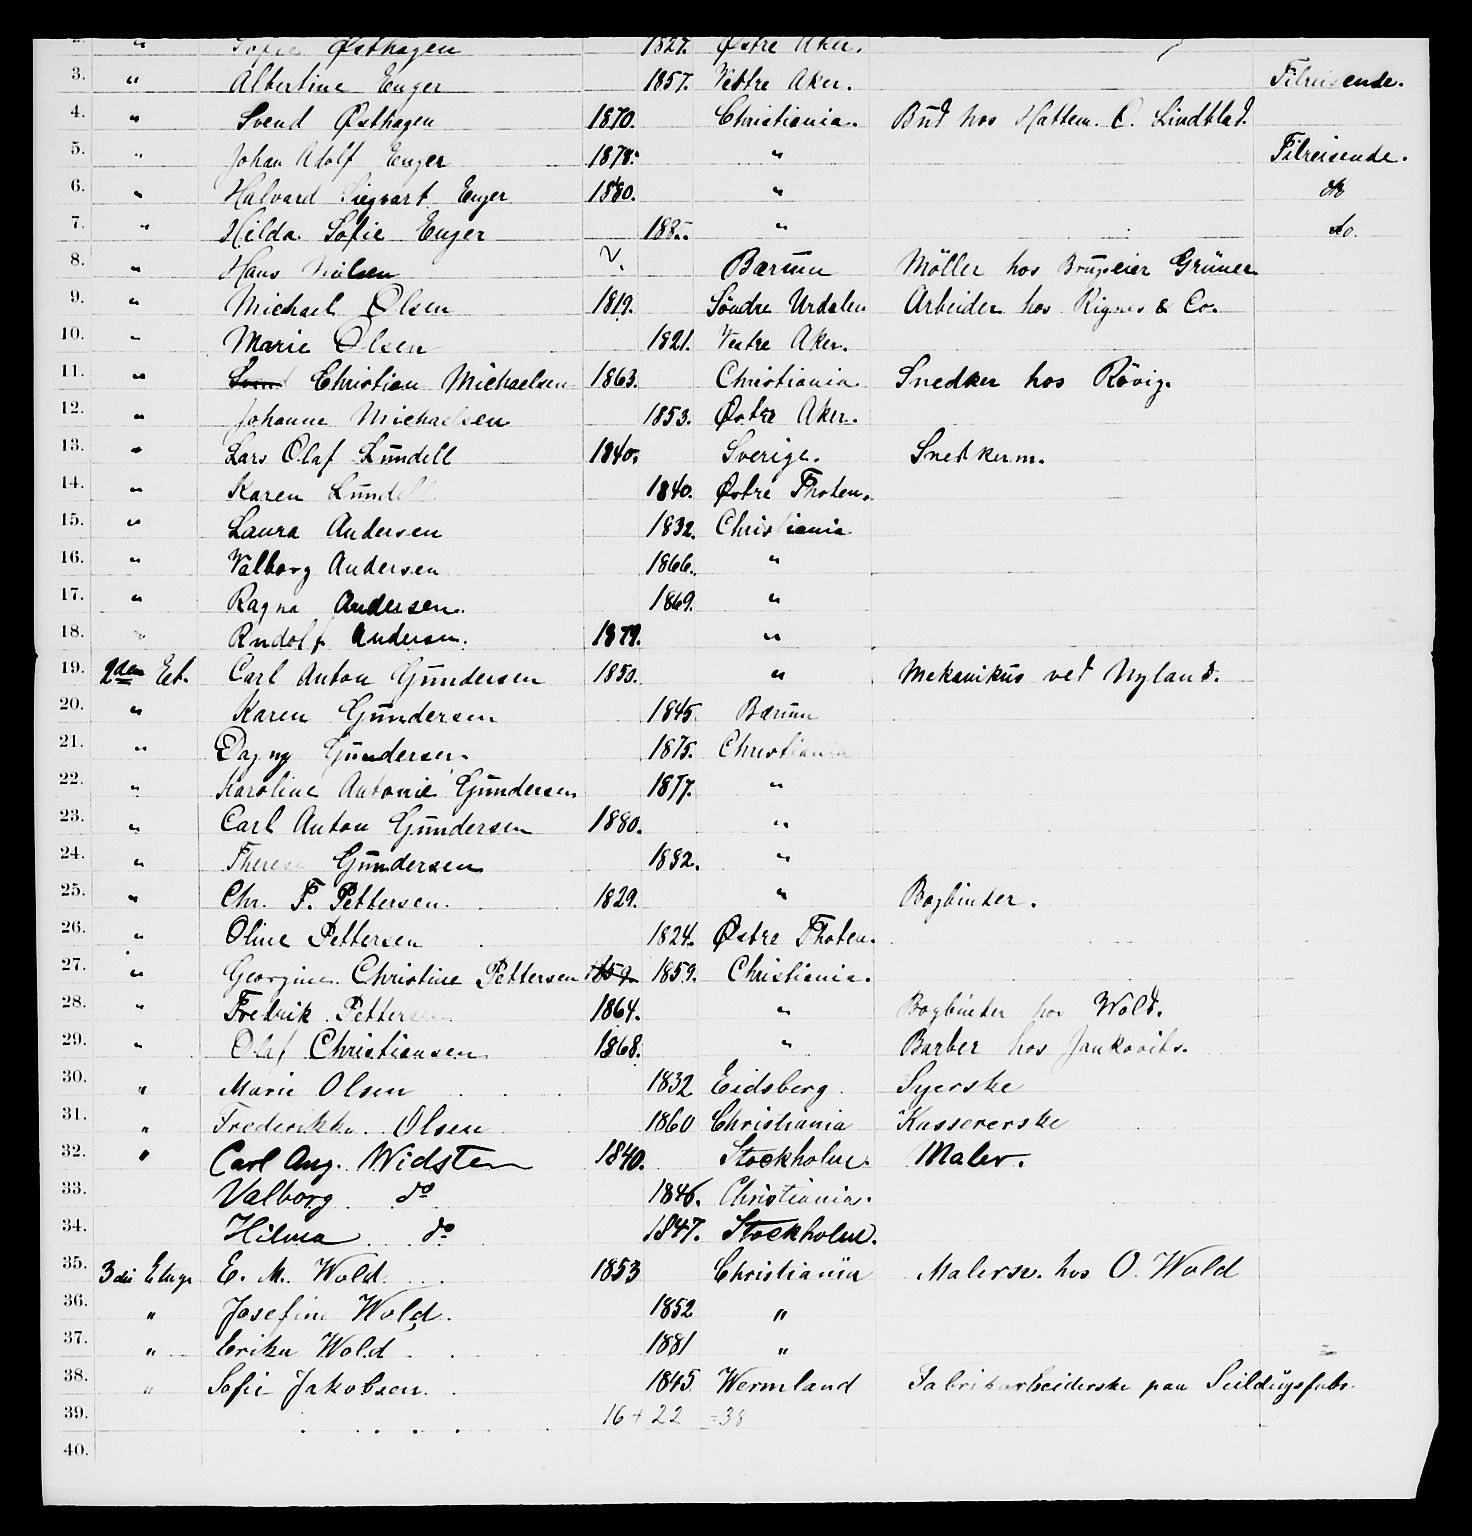 2. " Sofie Østhagen 1827. Østre Aker.
3. " Albertine Enger 1857. Vestre Aker. Tilreisende.
4. " Svend Østhagen 1870. Christiania. Bud hos Hattem. C. Lindblad.
5. " Johan Adolf Enger 1878. " Tilreisende.
6. " Halvard Siegvart Enger 1880. " do
7. " Hilda Sofie Enger " do.
8. " Hans Nielsen Bærum Möller hos Brugseier Grüner
9. " Michael Olsen 1819. Söndre Urdalen Arbeider hos Rignes & Co.
10. " Marie Olsen 1821. Vestre Aker.
11. " Christian Michaelsen 1863. Christiania Snedker hos Rövig.
12. " Johanne Michaelsen 1853. Østre Aker.
13. " Lars Olaf Lundell 1840. Sverige. Snedkerm.
14. " Karen Lundell 1840. Østre Thoten.
15. " Laura Andersen 1832. Christiania
16. " Valborg Andersen 1866. "
17. " Ragna Andersen. 1869. "
18. " Rudolf Andersen. 1879. "
19. 2den Et. Carl Anton Gundersen 1850. " Mekanikus ved Nyland.
20. " Karen Gundersen 1845 Bærum
21. " Dagny Gundersen. 1875. Christiania
22. " Karoline Antonie Gundersen 1877. "
23. " Carl Anton Gundersen 1880. "
24. " Therese Gundersen 1882. "
25. " Chr. F. Pettersen. 1829. " Bogbinder.
26. " Oline Pettersen 1824. Østre Thoten.
27. " Georgine Christine Pettersen 1859. 1859. Christiania.
28. " Fredrik Pettersen 1864. " Bogbinder hos Wold.
29. " Olaf Christiansen 1868. " Barber hos Jankovits.
30. " Marie Olsen 1832 Eidsberg Syerske
31. " Frederikke Olsen 1860 Christiania Kassererske
32. " Carl Aug. Widsten 1840. Stockholm. Maler.
33. Valborg do 1846. Christiania.
34. Hilma do 1847. Stockholm.
35. 3die Etage E. M. Wold 1853 Christiania Malersv. hos O. Wold
36. " Josefine Wold. 1852 "
37. " Erika Wold 1881 "
38. " Sofie Jakobsen. 1845 Wermland Fabrikarbeiderske paa Seildugsfabr.
39. 16 + 22 = 38
40.